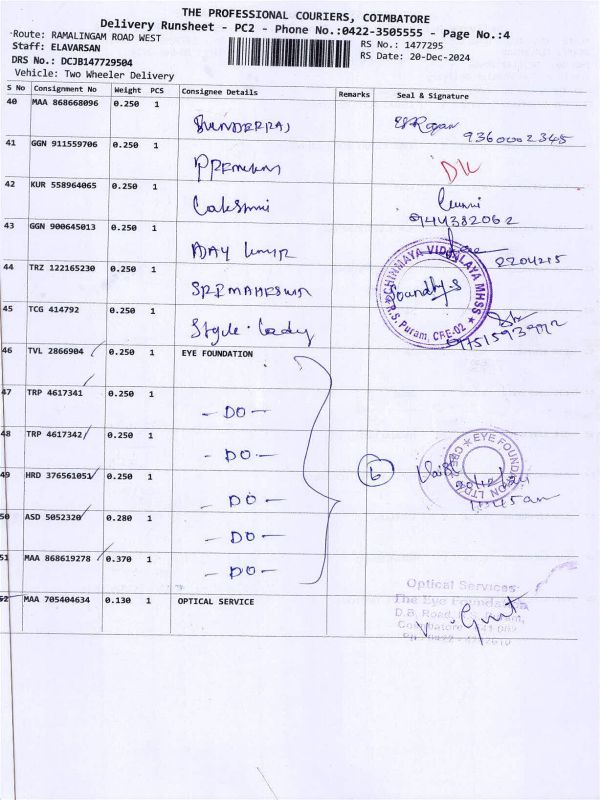 THE PROFESSIONAL COURIERS, COIMBATORE
Delivery Runsheet - PC2 - Phone No.:0422-3505555 - Page No.:4
Route: RAMALINGAM ROAD WEST
Staff: ELAVARSAN
RS No.: 1477295
DRS No.: DCJB147729504
RS Date: 20-Dec-2024
Vehicle: Two Wheeler Delivery
S No Consignment No Weight PCS Consignee Details Remarks Seal & Signature
40 MAA 868668096 0.250 1
SUNDERRAJ
9360002345
41 GGN 911559706 0.250 1
PREMIUM
42 KUR 558964065 0.250 1
Lakshmi
944382062
43 GGN 900645013 0.250 1
2204215
44 TRZ 122165230 0.250 1
SRI MAHESWR
CHINMAYA VIDYALAYA MHSS
R.S. Puram, CBE-02
Soundhy.S
45 TCG 414792 0.250 1
Style. Lady
46 TVL 2866904 0.250 1 EYE FOUNDATION
47 TRP 4617341 0.250 1
- DO -
48 TRP 4617342 0.250 1
- DO -
EYE FOUNDATION LTD
49 HRD 376561051 0.250 1
- DO -
6
11.45am
50 ASD 5052320 0.280 1
- DO -
51 MAA 868619278 0.370 1
- DO -
52 MAA 705404634 0.130 1 OPTICAL SERVICE
Optical Services
The Eye Foundation
D.B. Road,